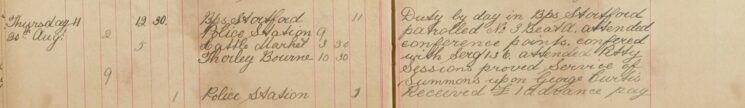 Thursday 11 12 30. Bps Stortford 11
30th Aug: 2 Police Station 9
5 Cattle Market 3 30
Thorley Bourne 10 30
9
1 Police Station 1
Duty by day in Bps Stortford
patrolled No 3 Beat. attended
conference points. confered
with Serg 13 E. attended Petty
Sessions proved Service of
Summons upon George Curtis
Received £1 Advance pay